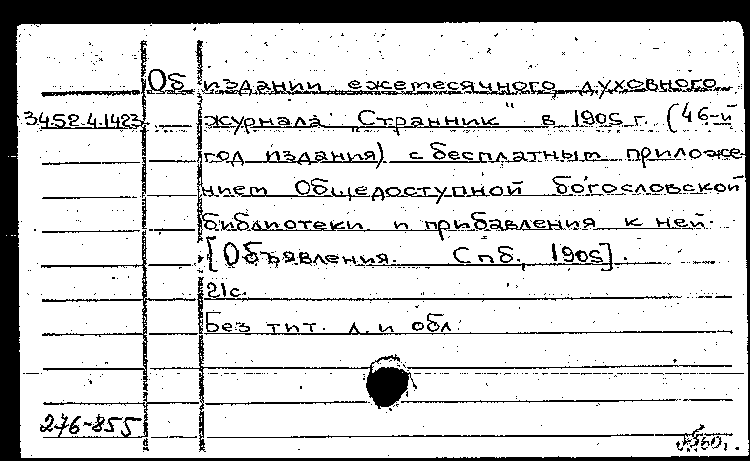 Об издании ежемесячного духовного
34.52.4.1423 журнала "Странник" в 1905 г. (46-й
год издания) с бесплатным приложе-
нием Общедоступной богословской
библиотеки и прибавления к ней.
[Объявления. Спб., 1905].
21с.
Без тит. л. и обл.
276-855